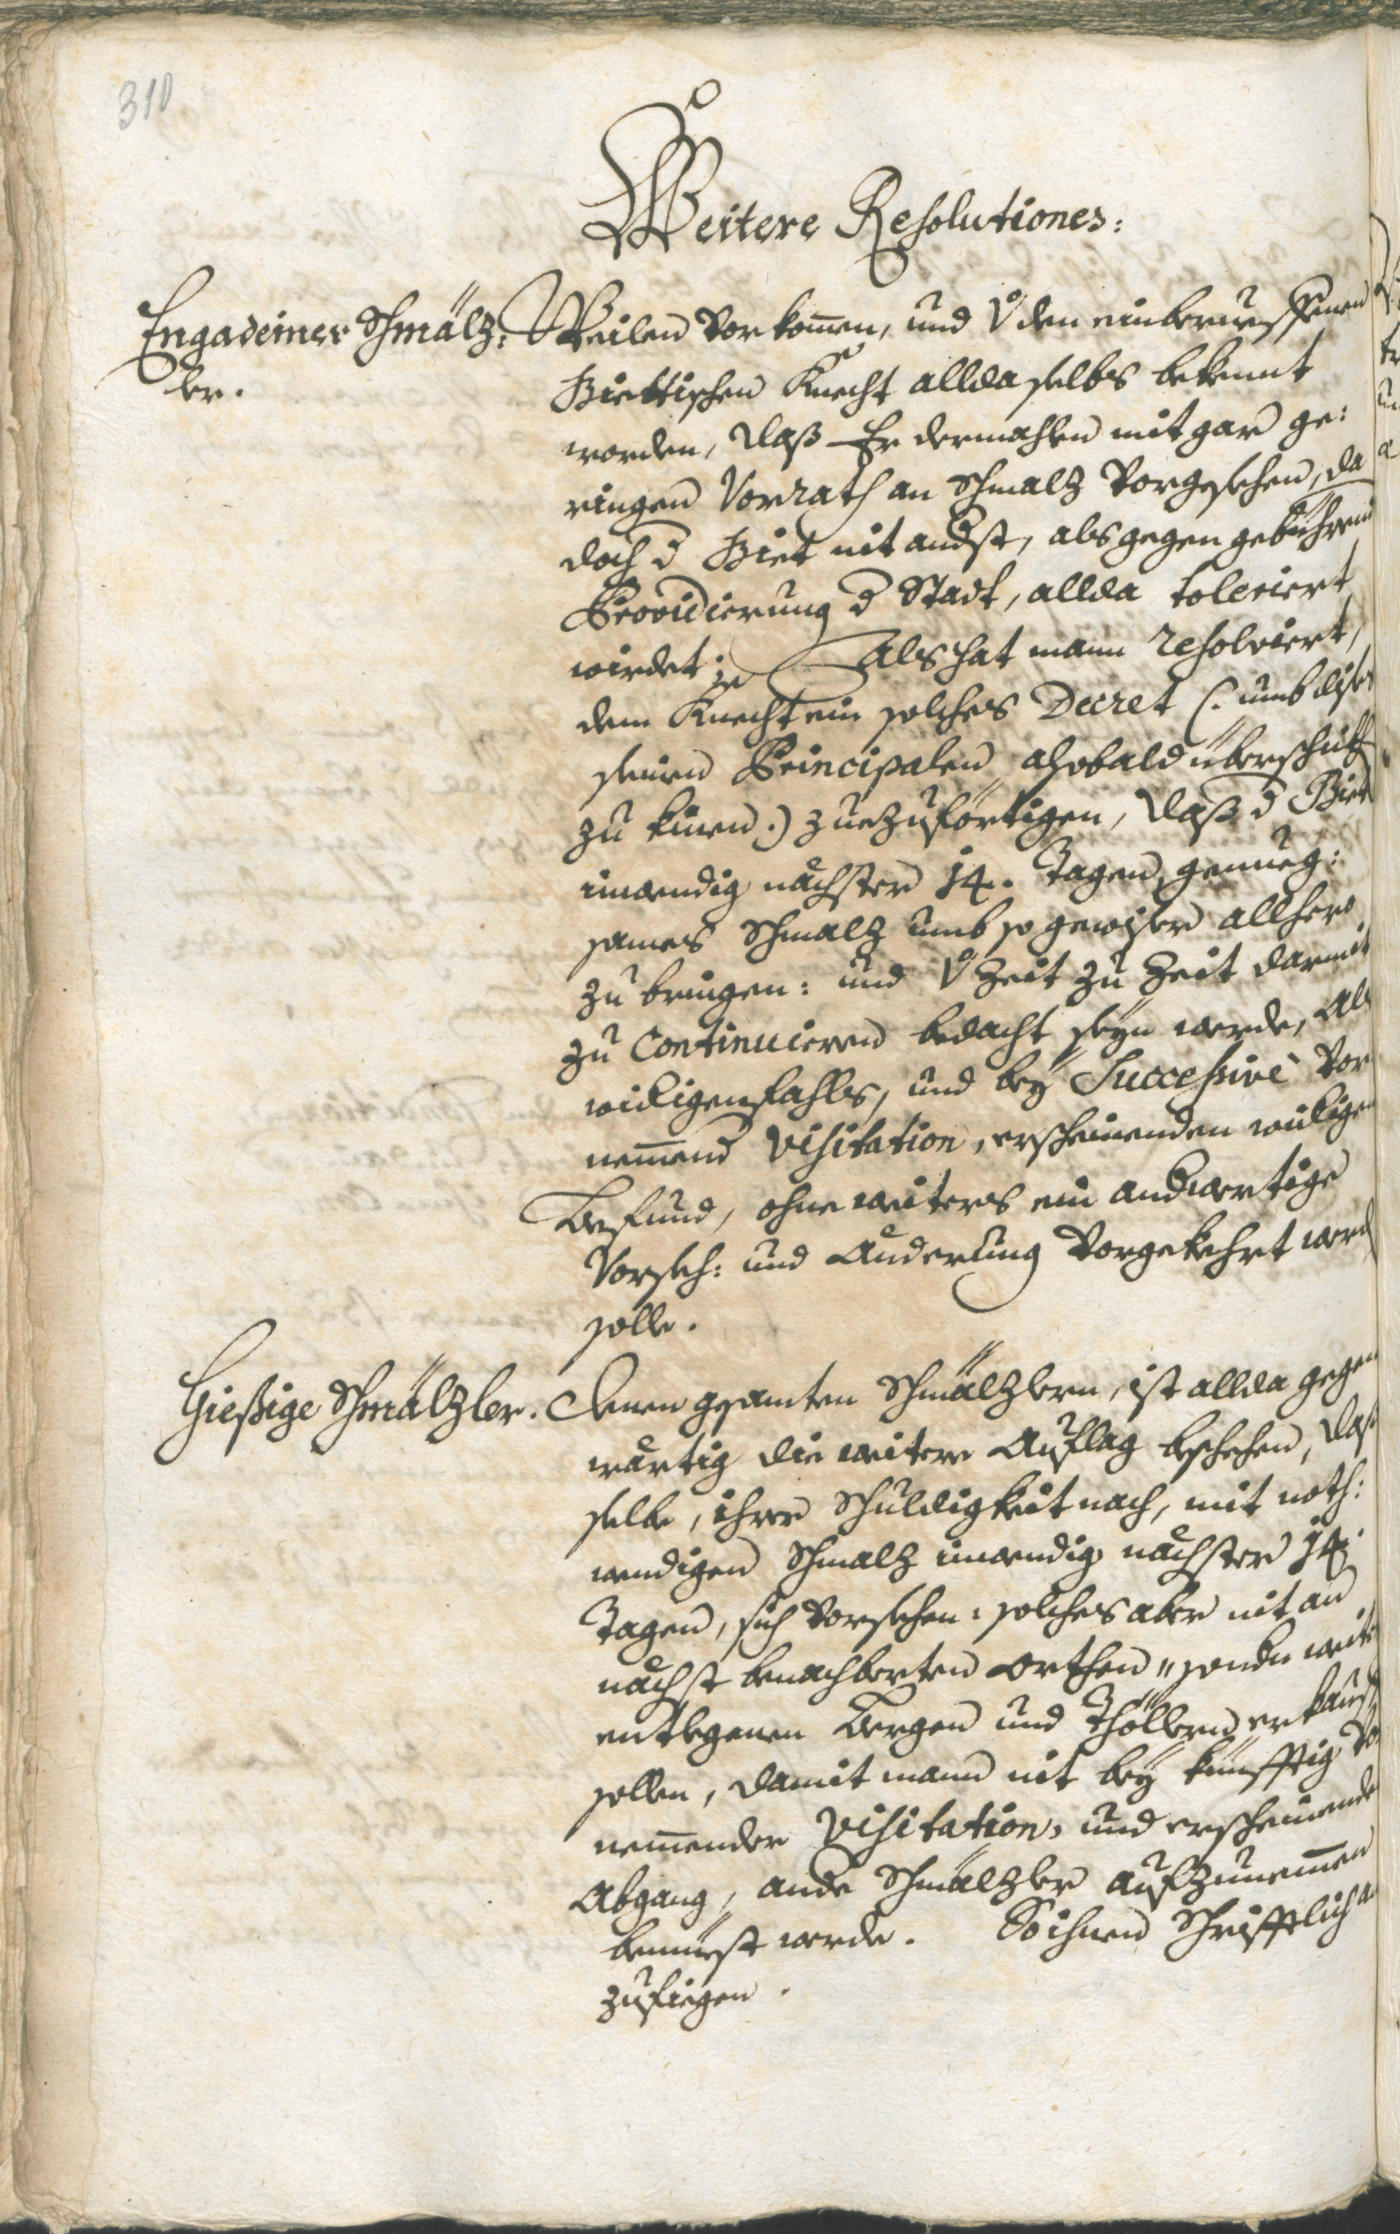 310
Weitere Resolutiones:
Engadeiner Schmälz:
ler.
Weilen vorkomen, und v den einberueffenen
Biettischen Knecht alldaselbs bekennt
worden, daß Er dermahlen mit gar ge:
ringen Vorrath an Schmalz vorgesehen, da
doch d Biet nit andst, als gegen gebührend
Providierung d Statt, allda toleriert
wirdet; Als hat mann resolviert,
dem Knecht ein solches Decret (: umb dises
seinen Principalen alsobald überschikh
zu kinen :) zuezuförtigen, daß d Biet
inwendig nächster 14. Tagen, genueg:
sames Schmalz umb so gewiser allhero
zu bringen: und v Zeit zu Zeit darmit
zu Continuieren bedacht seyn werde, als
widigenfahls, und bey Successivè vor
nemend Visitation, erscheinenden widigen
Befund, ohne weiters ein andwertige
Vorseh: und Änderung vorgekehrt werd
solle.
Hießige Schmälzler.
Denen gsamten Schmälzlern, ist allda gegen
wärtig die weitere Auflag beschehen, daß
selbe, ihrer Schuldigkeit nach, mit noth:
wendigen Schmalz inwendig nächster 14.
Tagen, sich vorsehen: solches aber nit an
nächst benachberten Orthen, sonder weit
entlegenen Bergen und Thöllern erkauff
sollen, damit mann nit bey künfftig vor
nemender Visitation, und erscheinende
Abgang, ande Schmälzler aufzunemen
bemüest werde. So ihnen Schrifftlich
zufiegen.